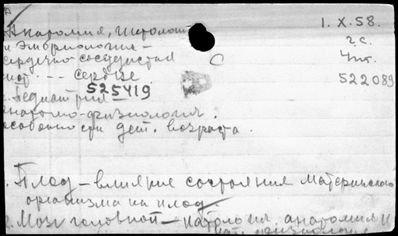 Анатомия, гистология
и эмбриология –
сердечно-сосудистая
сист. --- сердце.
1. X. 58.
г.с.
522089
525419
Педиатрия
анатомо-физиология.
особенности дет. возраста.
Плод – влияние состояния материнского
организма на плод
Мозг головной – патология. анатомия и